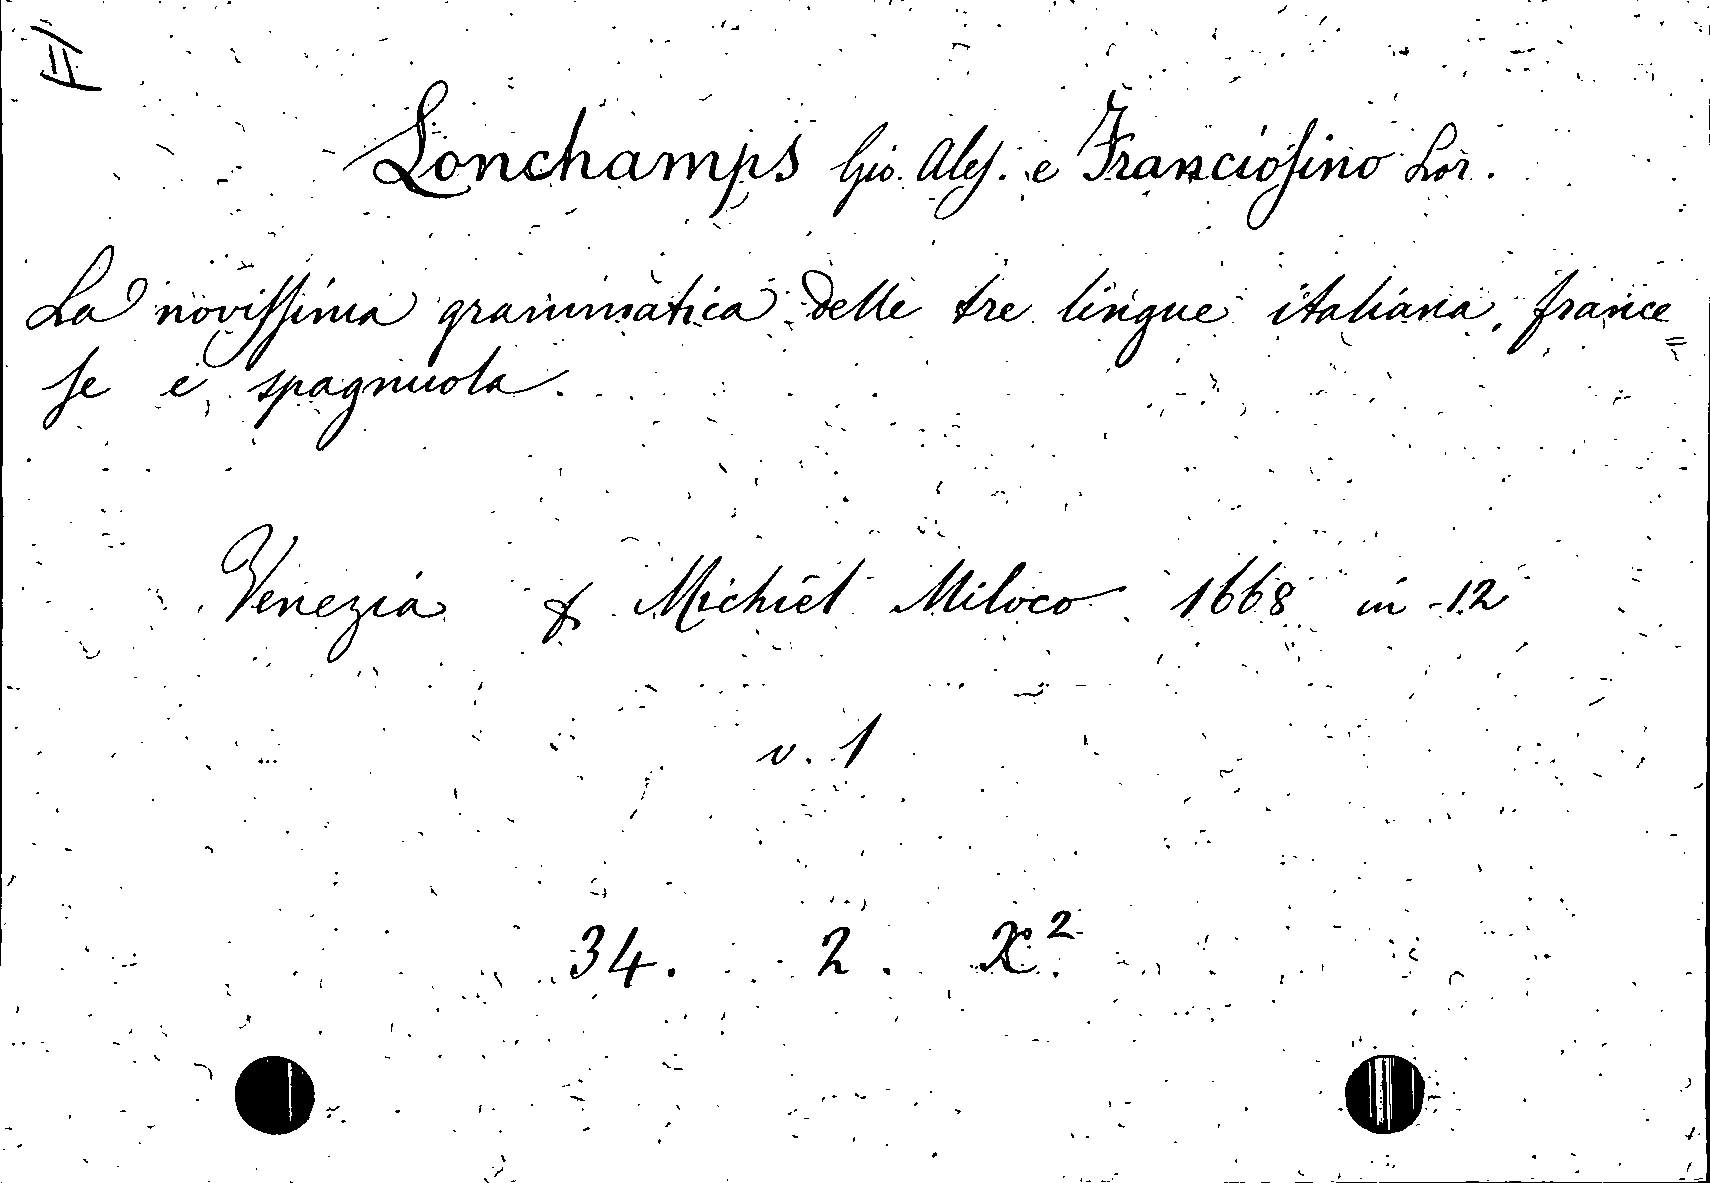 II
Lonchamps Gio. Aless. e Franciosino Lor.
La novissima grammatica delle tre lingue italiana, france=
se e spagnuola.
Venezia & Michiel Miloco 1668 in-12
v. 1
34. 2. X².